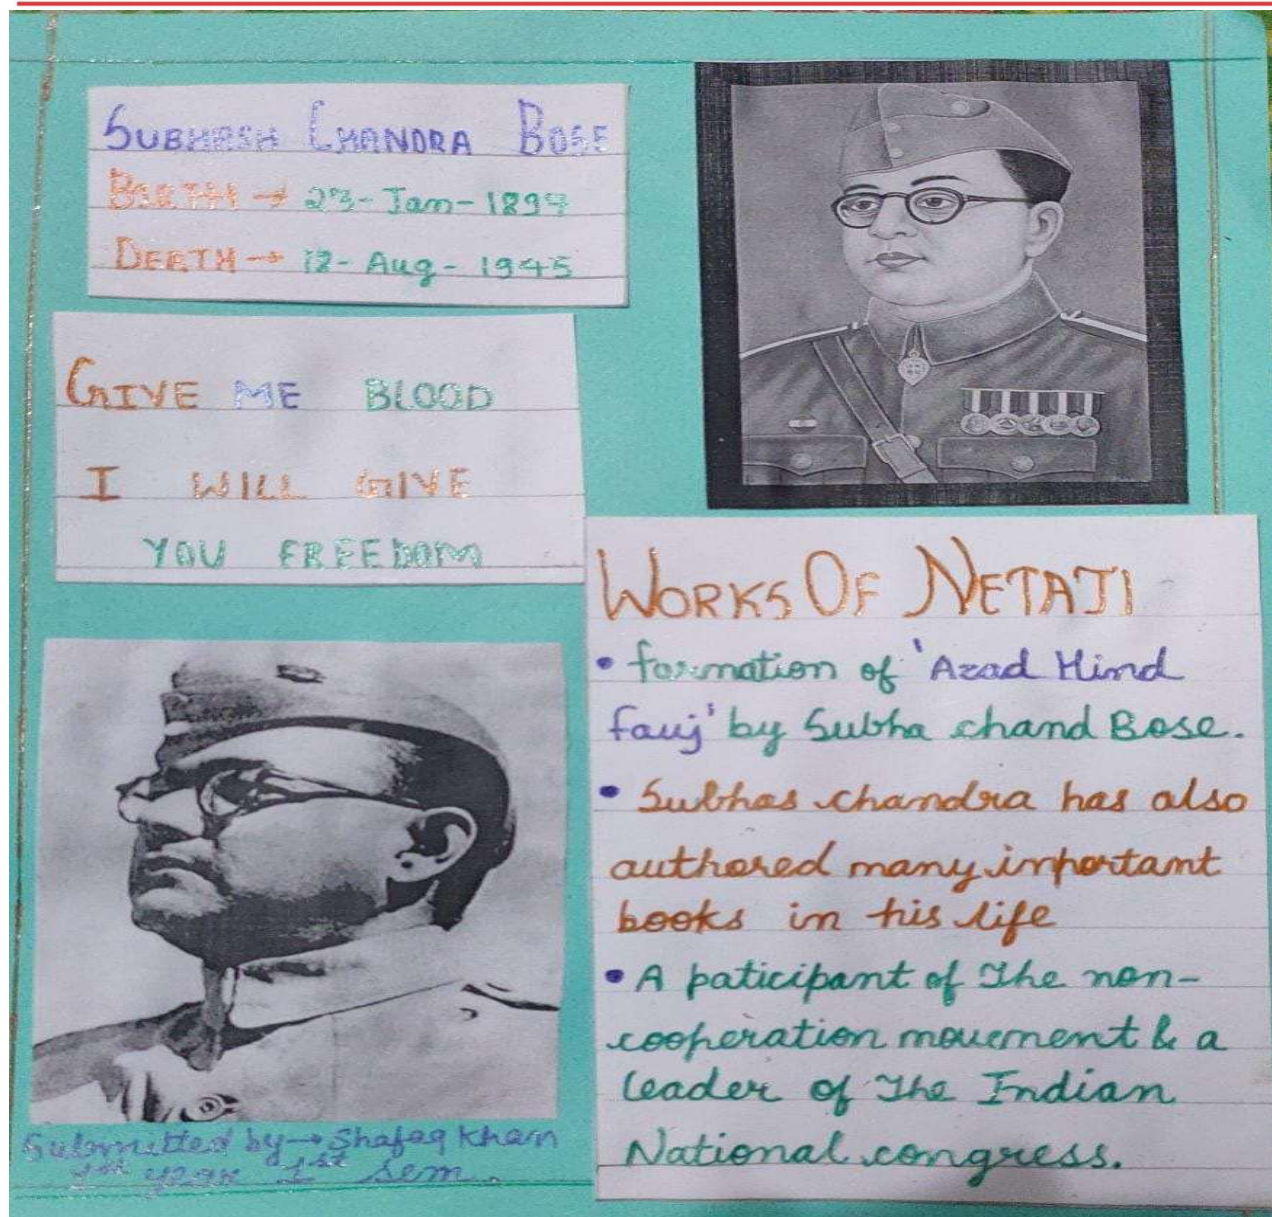 SUBHASH CHANDRA BOSE
BIRTH → 23-Jan-1897
DEATH → 18-Aug-1945
GIVE ME BLOOD
I WILL GIVE
YOU FREEDOM
WORKS OF NETAJI
• formation of 'Azad Hind
fauj' by Subha chand Bose.
• Subhas chandra has also
authored many important
books in his life
• A paticipant of The non-
cooperation movement & a
leader of The Indian
National congress.
Submitted by → Shafaq Khan
1st year 1st sem.